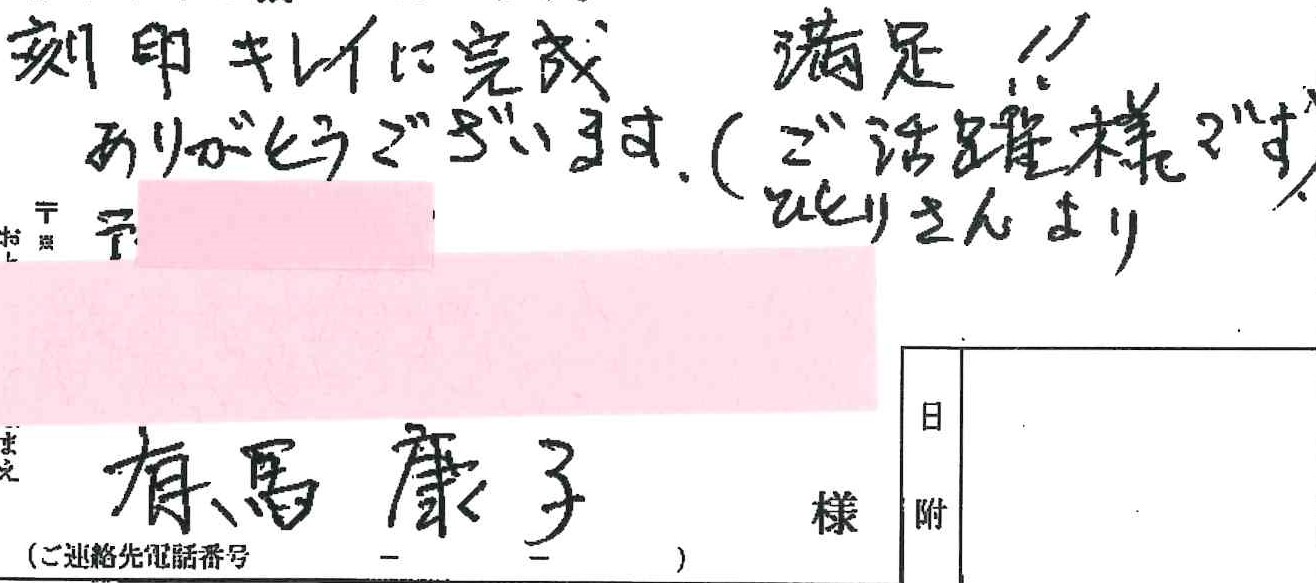 刻印キレイに完成 満足!!
ありがとうございます.(ご活躍様です)
ひとりさんより
〒
※
有馬 康子 様
(ご連絡先電話番号 ー ー )
日附